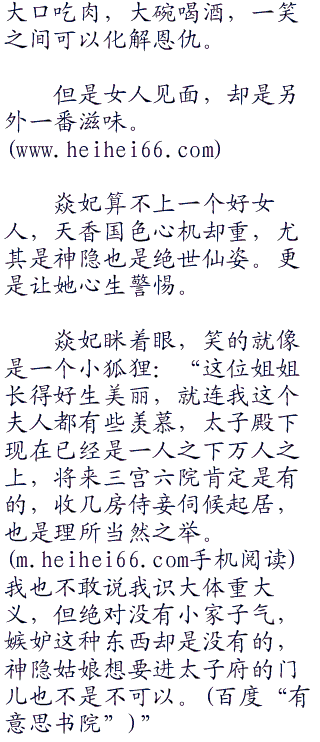 大口吃肉，大碗喝酒，一笑
之间可以化解恩仇。
但是女人见面，却是另
外一番滋味。
(www.heihei66.com)
焱妃算不上一个好女
人，天香国色心机却重，尤
其是神隐也是绝世仙姿。更
是让她心生警惕。
焱妃眯着眼，笑的就像
是一个小狐狸：“这位姐姐
长得好生美丽，就连我这个
夫人都有些羡慕，太子殿下
现在已经是一人之下万人之
上，将来三宫六院肯定是有
的，收几房侍妾伺候起居，
也是理所当然之举。
(m.heihei66.com手机阅读)
我也不敢说我识大体重大
义，但绝对没有小家子气，
嫉妒这种东西却是没有的，
神隐姑娘想要进太子府的门
儿也不是不可以。(百度“有
意思书院”)”